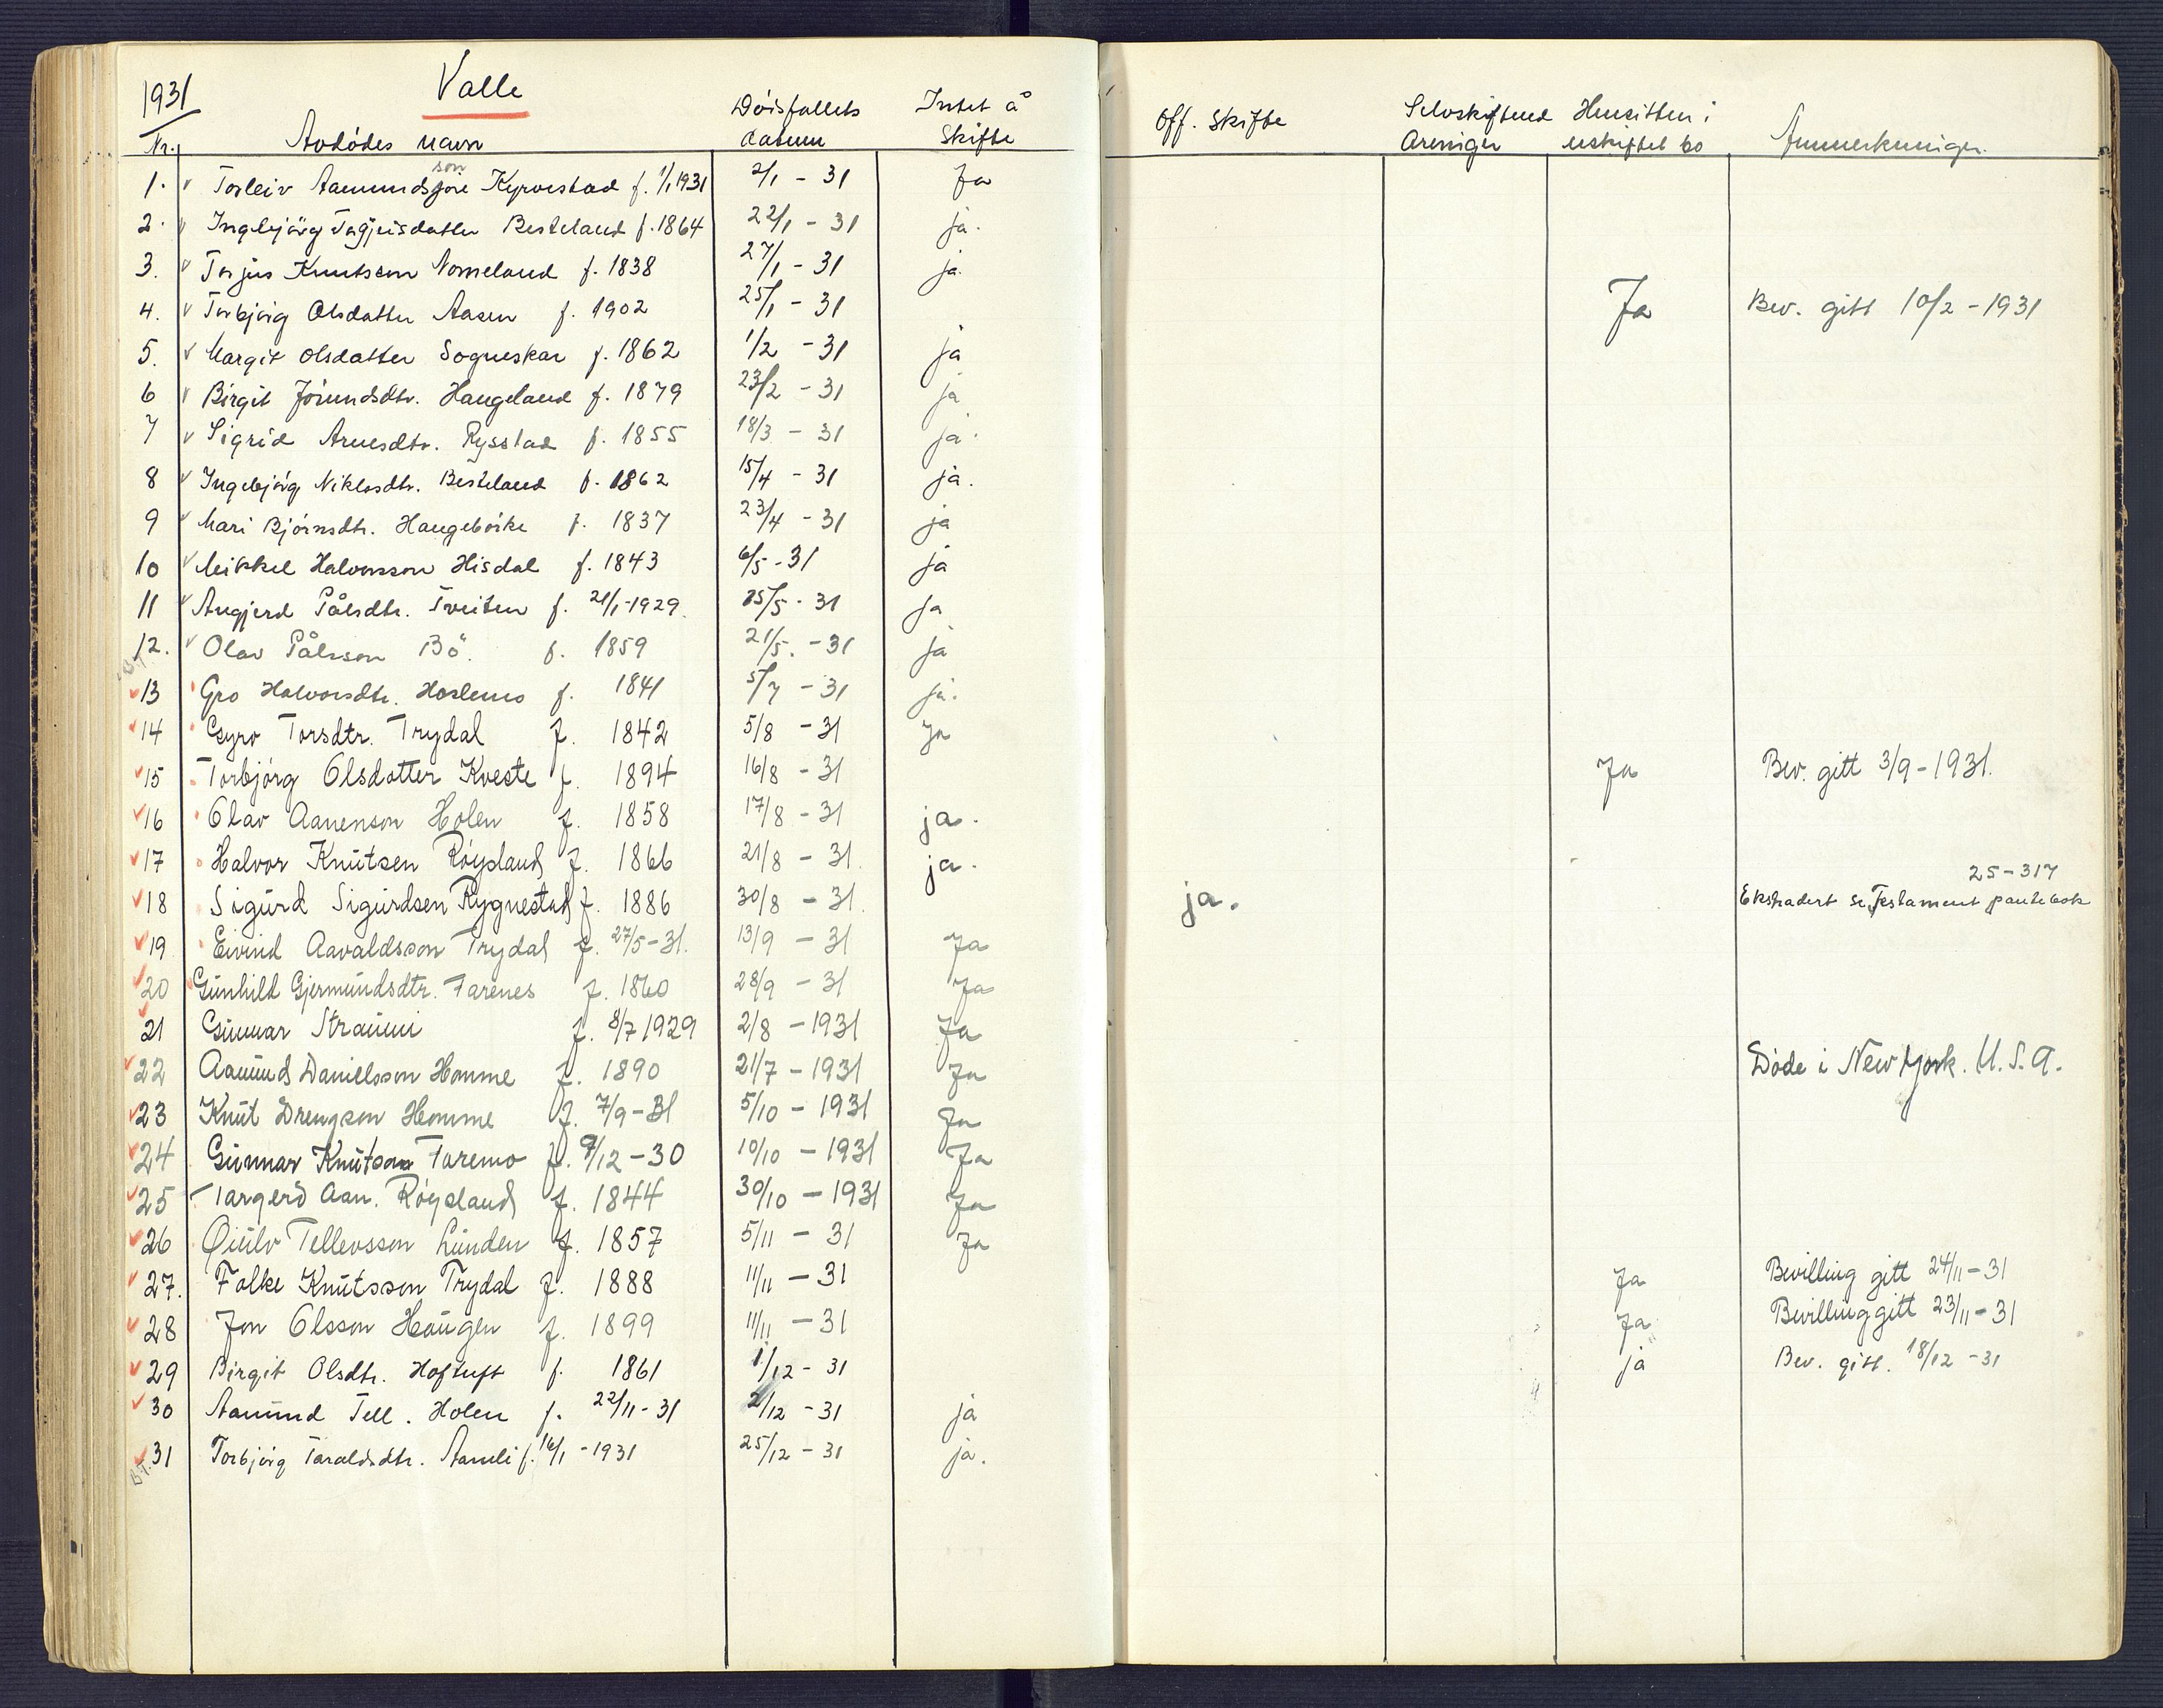 1931 Valle
Nr. Avdødes navn Dødsfallets datum Intet å skifte Off. Skifte Selvskiftend Arvinger Hensitten i uskiftet bo Anmerkninger.
1. Torleiv Aamundsson Kyrvestad f. 1/1 1931 2/1 - 31 Ja
2. Ingebjörg Tarjeisdatter Besteland f. 1864 22/1 - 31 ja.
3. Torjus Knutsson Nomeland f. 1838 27/1 - 31 ja.
4. Torbjørg Olsdatter Aasen f. 1902 25/1 - 31 Ja Bev. gitt 10/2 - 1931
5. Margit Olsdatter Sogneskar f. 1862 1/2 - 31 ja
6 Birgit Jørundsdtr. Haugeland f. 1879 23/2 - 31 ja
7 Sigrid Arnesdtr. Rysstad f. 1855 18/3 - 31 ja.
8 Ingebjørg Niklosdtr. Besteland f. 1862 15/4 - 31 ja.
9 Mari Bjørnsdtr. Haugebøike f. 1837 23/4 - 31 ja
10 Mikkel Halvorsson Hisdal f. 1843 6/5 - 31 ja
11 Angjerd Pålsdtr. Tveiten f. 21/1-1929. 15/5 - 31 ja
12. Olav Pålsson Bö. f. 1859 21/5. - 31 ja
13 Gro Halvorsdtr. Harlemo f. 1841 5/7 - 31 ja.
14 Gyro Torsdtr. Trydal f. 1842 5/8 - 31 Ja
15 Torbjørg Olsdatter Kveste f. 1894 16/8 - 31 Ja Bev. gitt 3/9 - 1931.
16 Olav Aanenson Holen f. 1858 17/8 - 31 ja.
17 Halvor Knutsen Røysland f. 1866 21/8 - 31. ja.
25-317
18 Sigurd Sigurdsen Rygnestad f. 1886 30/8 - 31. ja. Ekstradert se Testament pantebok
19 Eivind Aavaldsson Trydal f. 27/5 - 31. 13/9 - 31 Ja
20 Gunhild Gjermundsdtr. Farenes f. 1860 28/9 - 31 Ja
21 Gunnar Straumi f. 8/7 1929 2/8 - 1931 Ja
22 Aamund Danielsson Homme f. 1890 21/7 - 1931 Ja Døde i New York. U.S.A.
23 Knut Drengson Homme f. 7/9 - 31 5/10 - 1931 Ja
24 Gunnar Knutson Faremo f. 9/12 - 30 10/10 - 1931 Ja
25 Targerd Aan. Røysland f. 1844 30/10 - 1931 Ja
26 Øiulv Tellevsson Lunden f. 1857 5/11 - 31 Ja
27. Folke Knutsson Trydal f. 1888 11/11 - 31 Ja Bevilling gitt 24/11 - 31
28 Jon Olsson Haugen f. 1899 11/11 - 31 Ja Bevilling gitt 23/11 - 31
29 Birgit Olsdtr. Hoftuft f. 1861 1/12 - 31 ja Bev. gitt. 18/12 - 31
30 Aamund Tell. Holen f. 22/11 - 31 2/12 - 31 ja
31 Torbjørg Taraldsdtr. Aamli f. 16/1 - 1931 25/12 - 31 ja.